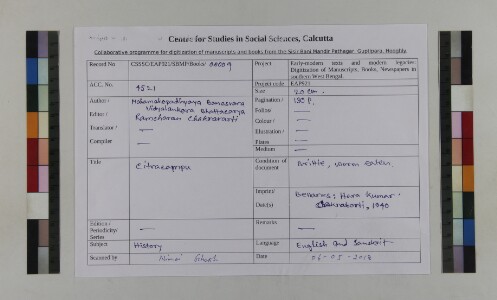 Centre for Studies in Social Sciences, Calcutta
Collaborative programme for digitisation of manuscripts and books from the Sri Sri Bani Mandir Pathagar, Guptipara, Hooghly.
Record No
CSSSC/EAP921/SBMP/Books/00009
Project
Early-modern texts and modern legacies:
Digitisation of Manuscripts, Books, Newspapers in
southern West Bengal.
ACC. No.
4521
Project code
EAP921
Size
20 Cm.
Author /
Mahamahopadhyaya Banesvara
Pagination /
190 P.
Editor /
Vidyalankara Bhattacarya
Folios
—
Ramcharan Chakravarti
Colour /
—
Translator /
—
Illustration /
—
Compiler
—
Plates
—
Medium
—
Title
Citracampu
Condition of
document
Brittle, worm eaten.
Imprint
Date(s)
Benaras; Hara Kumar
Chakravarti, 1940
Edition /
Periodicity/
Series
—
Remarks
—
Subject
History
Language
English and Sanskrit
Scanned by
Nimai Ghosh
Date
06-05-2018